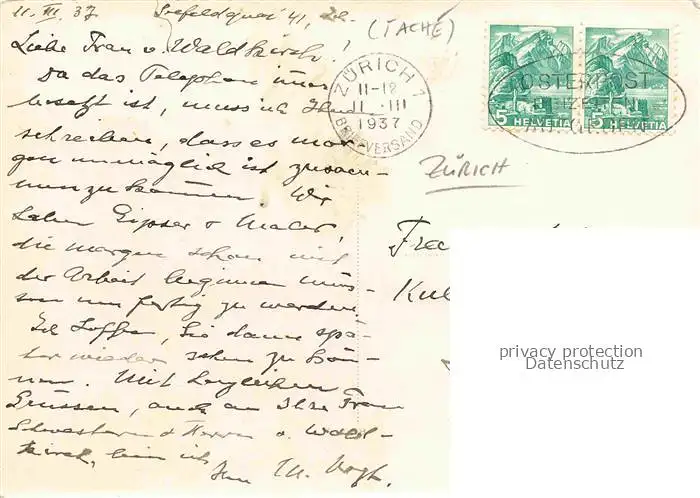 11. III. 37 Seefeldquai 41, Zch.
(TACHÉ)
Liebe Frau v. Waldkirch!
Da das Telephon immer
besetzt ist, muss ich Ihnen
schreiben, dass es mor-
gen unmöglich ist zusam-
menzukommen. Wir
haben Gipser & Maler,
die morgen schon mit
der Arbeit beginnen müs-
sen um fertig zu werden.
Ich hoffe, Sie dann spä-
ter wieder sehen zu kön-
nen. Mit herzlichen
Grüssen, auch an Ihre Frau
Schwester & Herrn v. Wald-
kirch, bin ich
Ihre M. Vogt.
ZÜRICH 1
11-12
11. III
1937
BRIEFVERSAND
OSTERPOST
5 HELVETIA 5 HELVETIA
ZÜRICH
privacy protection
Datenschutz